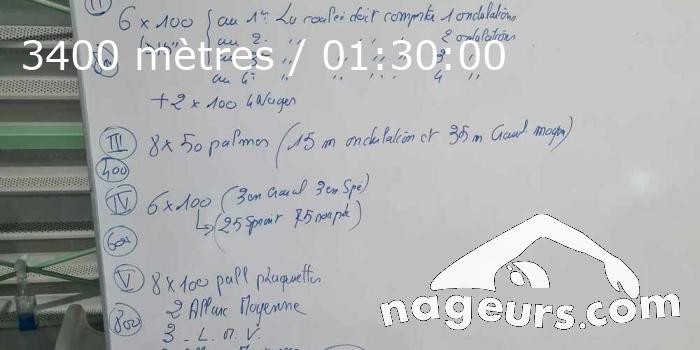 II
6 x 100 { au 1er La coulée doit compter 1 ondulations
au 2e " " " " 2 ondulations
3400 mètres / 01:30:00
au 3e " " " " 3 "
au 4e " " " " 4 "
+ 2 x 100 4 Nages
III 8 x 50 palmes (15 m ondulation et 35 m Crawl moyen)
400
IV 6 x 100 (3 en Crawl 3 en Spé)
↳ (25 Sprint 75 souple)
600
V 8 x 100 pull plaquettes
2 Allure Moyenne
800 3 - L. M. V.
nageurs.com